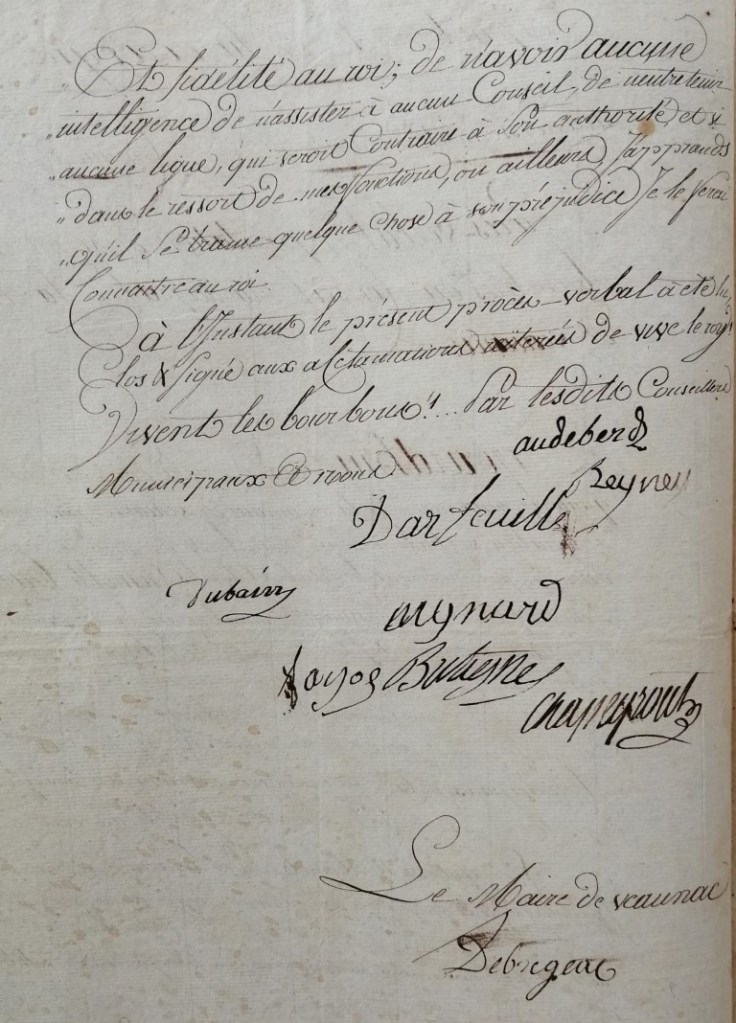 „ Et fidélité au roi; de n'avoir aucune
„ intelligence de n'assister à aucun Conseil, de n'entretenir
„ aucune ligue, qui seroit Contraire à Son authorité et si
„ dans le ressort de mes fonctions, ou ailleurs, J'apprands
„ qu'il Se trame quelque chose à son préjudice Je le ferai
Connaitre au roi.
à l'Instant le présent procès-verbal a été lu,
Clos & signé aux acclamations réiterées de vive le roy!
Vivent les bourbons!!... Par lesdits Conseillers
Municipaux Et nous
audeberd
Reyney
Darfeuille
Dubain
aynard
Bateyne
Chapeyrout
Le Maire de veaunac
Debregeac